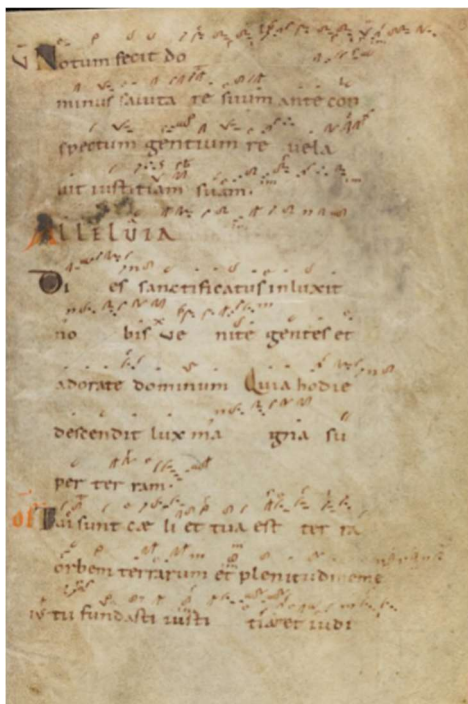 V Notum fecit do
minus salutare suum ante con
spectum gentium revela
vit iustitiam suam.
ALLELUIA
Dies sanctificatus inluxit
nobis Venite gentes et
adorate dominum Quia hodie
descendit lux magna su
per terram.
OF Tui sunt cæli et tua est terra
orbem terrarum et plenitudinem e
ius tu fundasti iusti tia et iudi